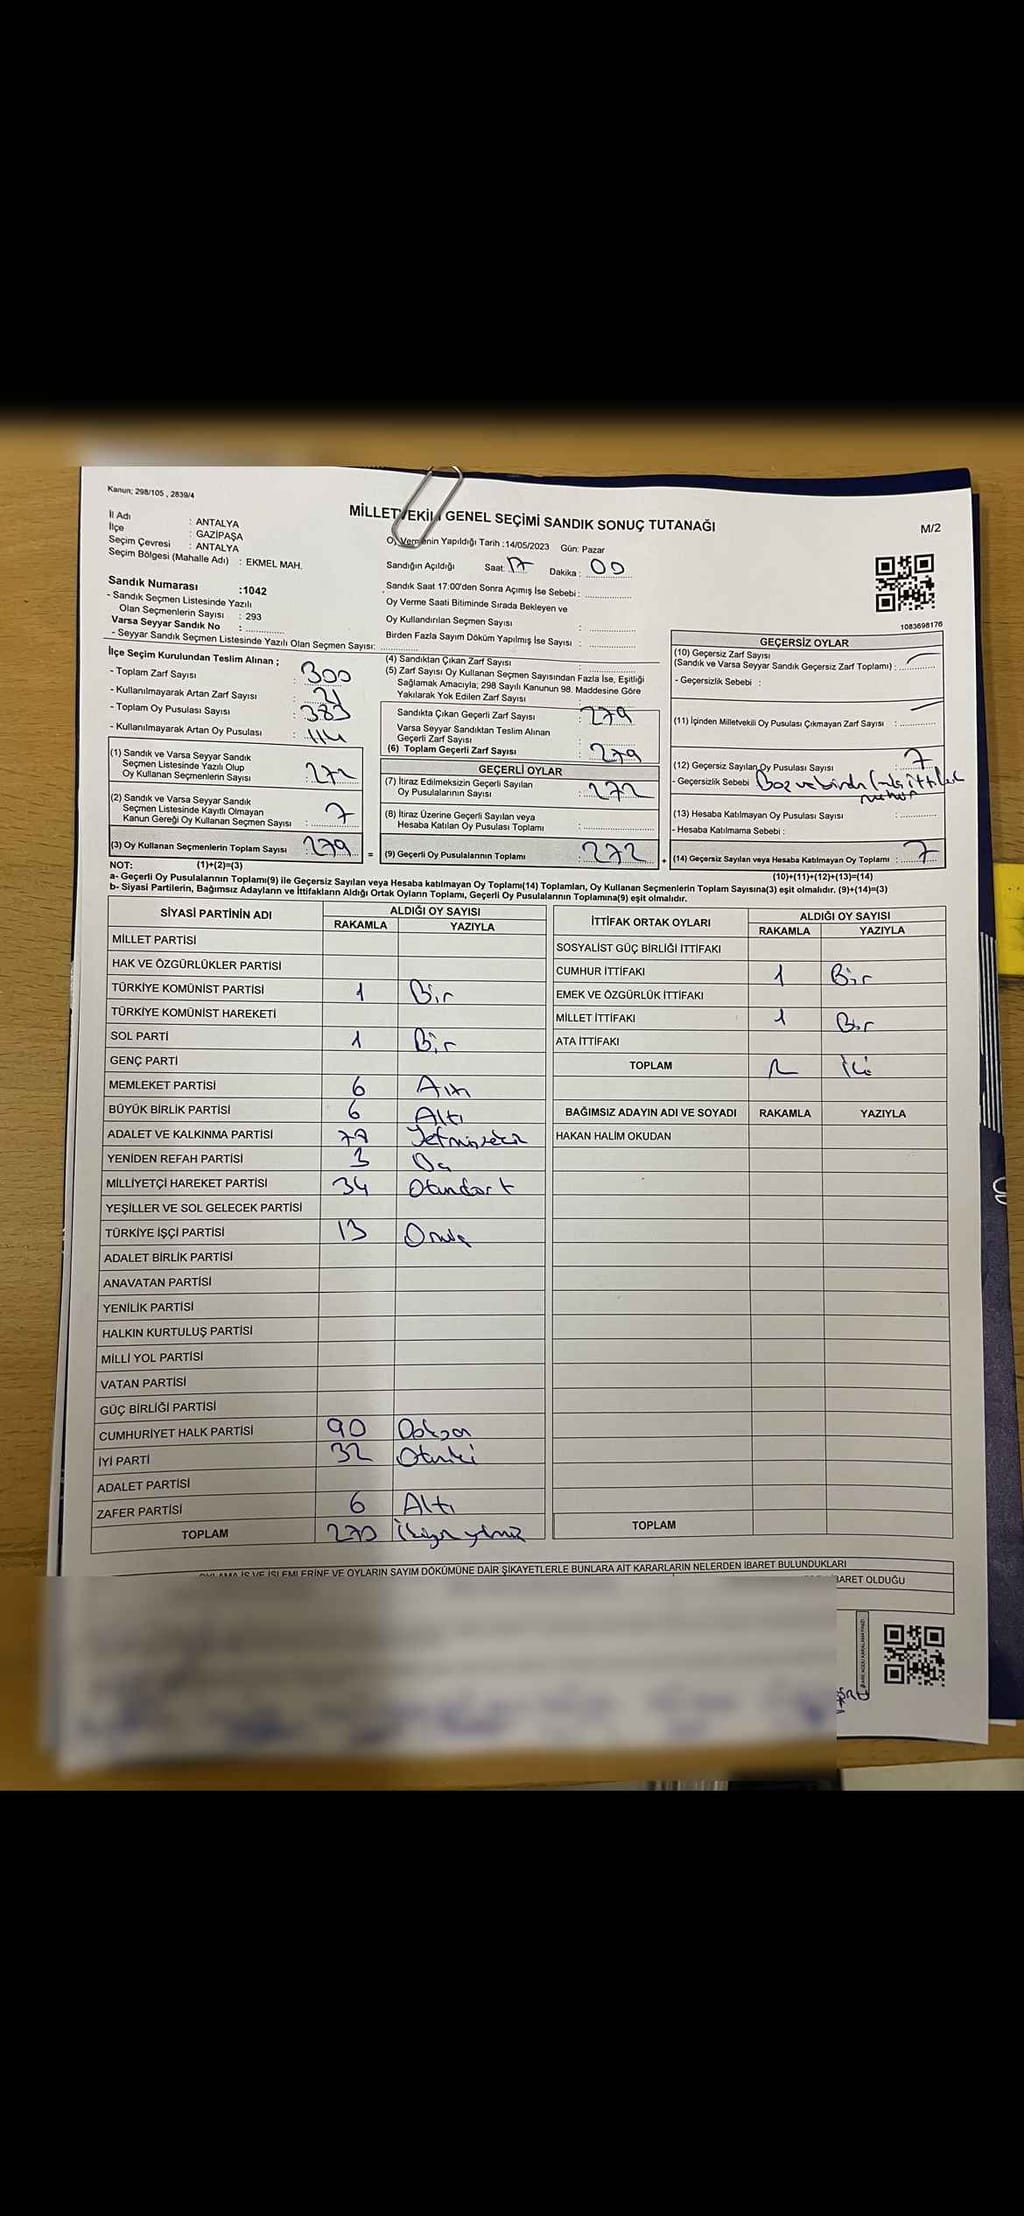 Kanun; 298/105 , 2839/4
MİLLETVEKİLİ GENEL SEÇİMİ SANDIK SONUÇ TUTANAĞI
M/2
İl Adı : ANTALYA
İlçe : GAZİPAŞA
Seçim Çevresi : ANTALYA
Seçim Bölgesi (Mahalle Adı) : EKMEL MAH.
Oy Vermenin Yapıldığı Tarih :14/05/2023 Gün: Pazar
Sandığın Açıldığı Saat: 17 Dakika : 00
Sandık Saat 17:00'den Sonra Açımış İse Sebebi :
Oy Verme Saati Bitiminde Sırada Bekleyen ve
Oy Kullandırılan Seçmen Sayısı :
Birden Fazla Sayım Döküm Yapılmış İse Sayısı :
1083698176
Sandık Numarası :1042
- Sandık Seçmen Listesinde Yazılı
Olan Seçmenlerin Sayısı : 293
Varsa Seyyar Sandık No :
- Seyyar Sandık Seçmen Listesinde Yazılı Olan Seçmen Sayısı:
İlçe Seçim Kurulundan Teslim Alınan ;
- Toplam Zarf Sayısı : 300
- Kullanılmayarak Artan Zarf Sayısı : 21
- Toplam Oy Pusulası Sayısı : 383
- Kullanılmayarak Artan Oy Pusulası : 114
(1) Sandık ve Varsa Seyyar Sandık
Seçmen Listesinde Yazılı Olup
Oy Kullanan Seçmenlerin Sayısı : 272
(2) Sandık ve Varsa Seyyar Sandık
Seçmen Listesinde Kayıtlı Olmayan
Kanun Gereği Oy Kullanan Seçmen Sayısı : 7
(3) Oy Kullanan Seçmenlerin Toplam Sayısı : 279 =
(4) Sandıktan Çıkan Zarf Sayısı :
(5) Zarf Sayısı Oy Kullanan Seçmen Sayısından Fazla İse, Eşitliği
Sağlamak Amacıyla; 298 Sayılı Kanunun 98. Maddesine Göre
Yakılarak Yok Edilen Zarf Sayısı :
Sandıkta Çıkan Geçerli Zarf Sayısı : 279
Varsa Seyyar Sandıktan Teslim Alınan
Geçerli Zarf Sayısı
(6) Toplam Geçerli Zarf Sayısı : 279
GEÇERLİ OYLAR
(7) İtiraz Edilmeksizin Geçerli Sayılan
Oy Pusulalarının Sayısı : 272
(8) İtiraz Üzerine Geçerli Sayılan veya
Hesaba Katılan Oy Pusulası Toplamı :
(9) Geçerli Oy Pusulalarının Toplamı : 272 +
GEÇERSİZ OYLAR
(10) Geçersiz Zarf Sayısı
(Sandık ve Varsa Seyyar Sandık Geçersiz Zarf Toplamı) :
- Geçersizlik Sebebi :
(11) İçinden Milletvekili Oy Pusulası Çıkmayan Zarf Sayısı :
(12) Geçersiz Sayılan Oy Pusulası Sayısı : 7
- Geçersizlik Sebebi
(13) Hesaba Katılmayan Oy Pusulası Sayısı :
- Hesaba Katılmama Sebebi :
(14) Geçersiz Sayılan veya Hesaba Katılmayan Oy Toplamı : 7
NOT: (1)+(2)=(3)
(10)+(11)+(12)+(13)=(14)
a- Geçerli Oy Pusulalarının Toplamı(9) ile Geçersiz Sayılan veya Hesaba katılmayan Oy Toplamı(14) Toplamları, Oy Kullanan Seçmenlerin Toplam Sayısına(3) eşit olmalıdır. (9)+(14)=(3)
b- Siyasi Partilerin, Bağımsız Adayların ve İttifakların Aldığı Ortak Oyların Toplamı, Geçerli Oy Pusulalarının Toplamına(9) eşit olmalıdır.
SİYASİ PARTİNİN ADI ALDIĞI OY SAYISI
RAKAMLA YAZIYLA
MİLLET PARTİSİ
HAK VE ÖZGÜRLÜKLER PARTİSİ
TÜRKİYE KOMÜNİST PARTİSİ 1 Bir
TÜRKİYE KOMÜNİST HAREKETİ
SOL PARTİ 1 Bir
GENÇ PARTİ
MEMLEKET PARTİSİ 6 Altı
BÜYÜK BİRLİK PARTİSİ 6 Altı
ADALET VE KALKINMA PARTİSİ
YENİDEN REFAH PARTİSİ 3
MİLLİYETÇİ HAREKET PARTİSİ 34 Otuzdört
YEŞİLLER VE SOL GELECEK PARTİSİ
TÜRKİYE İŞÇİ PARTİSİ 13
ADALET BİRLİK PARTİSİ
ANAVATAN PARTİSİ
YENİLİK PARTİSİ
HALKIN KURTULUŞ PARTİSİ
MİLLİ YOL PARTİSİ
VATAN PARTİSİ
GÜÇ BİRLİĞİ PARTİSİ
CUMHURİYET HALK PARTİSİ 90 Doksan
İYİ PARTİ 32 Otuziki
ADALET PARTİSİ
ZAFER PARTİSİ 6 Altı
TOPLAM 270
İTTİFAK ORTAK OYLARI ALDIĞI OY SAYISI
RAKAMLA YAZIYLA
SOSYALİST GÜÇ BİRLİĞİ İTTİFAKI
CUMHUR İTTİFAKI 1 Bir
EMEK VE ÖZGÜRLÜK İTTİFAKI
MİLLET İTTİFAKI 1 Bir
ATA İTTİFAKI
TOPLAM 2 İki
BAĞIMSIZ ADAYIN ADI VE SOYADI RAKAMLA YAZIYLA
HAKAN HALİM OKUDAN
TOPLAM
İŞ VE İŞLEMLERİNE VE OYLARIN SAYIM DÖKÜMÜNE DAİR ŞİKAYETLERLE BUNLARA AİT KARARLARIN NELERDEN İBARET BULUNDUKLARI
İBARET OLDUĞU